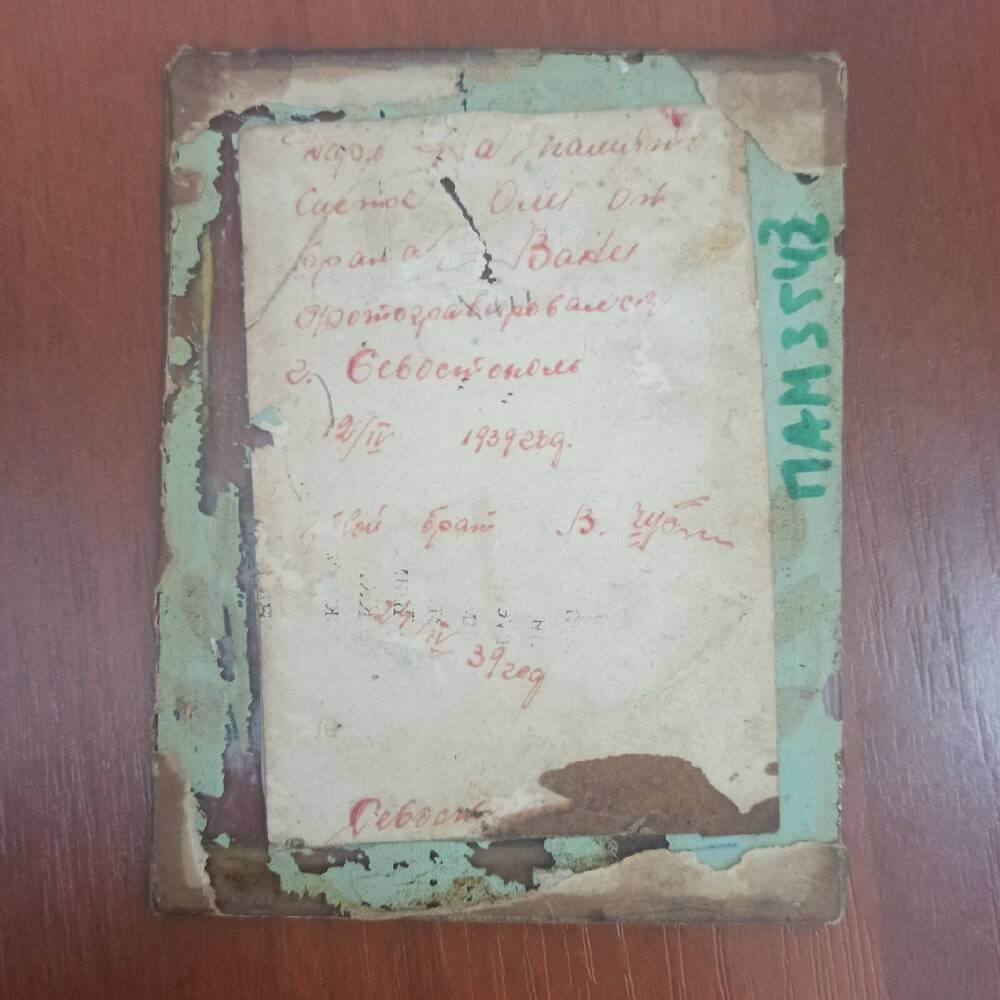 На память
сестре Оли от
брата Вани
Фотографировался
г. Севостополь
12/IV 1939 год.
Твой брат В.
24/IV 39 год
Севост
ПАМ 3543